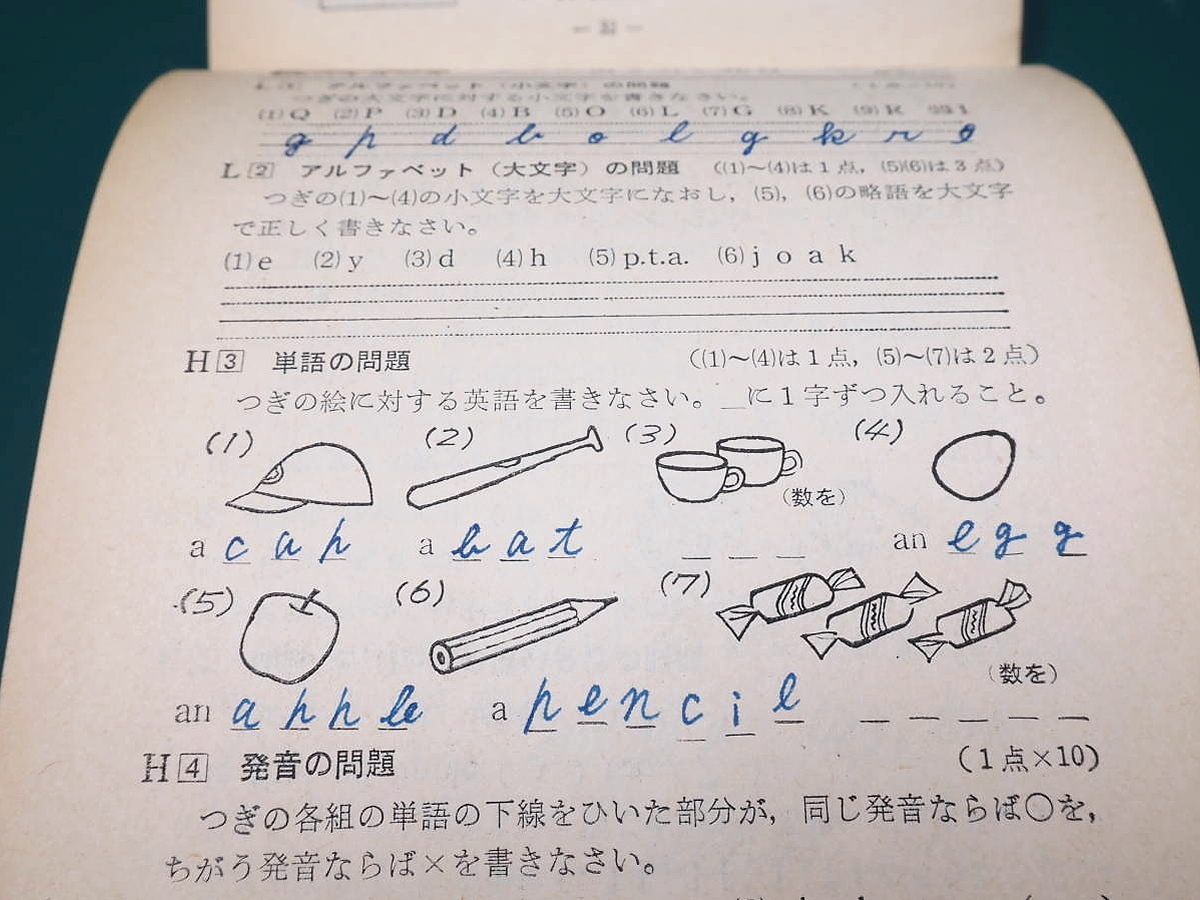 L 1 アルファベット（小文字）の問題
つぎの大文字に対する小文字を書きなさい。
(1) Q (2) P (3) D (4) B (5) O (6) L (7) G (8) K (9) R
g p d b o l g k r
L 2 アルファベット（大文字）の問題 ((1)～(4)は1点, (5)(6)は3点)
つぎの(1)～(4)の小文字を大文字になおし, (5), (6)の略語を大文字
で正しく書きなさい。
(1) e (2) y (3) d (4) h (5) p.t.a. (6) j o a k
H 3 単語の問題 ((1)～(4)は1点, (5)～(7)は2点)
つぎの絵に対する英語を書きなさい。_に1字ずつ入れること。
(1) (2) (3) (4)
(数を)
a cap a bat _ _ _ _ an egg
(5) (6) (7)
(数を)
an apple a pencil _ _ _ _ _
H 4 発音の問題 (1点×10)
つぎの各組の単語の下線をひいた部分が, 同じ発音ならば○を,
ちがう発音ならば×を書きなさい。